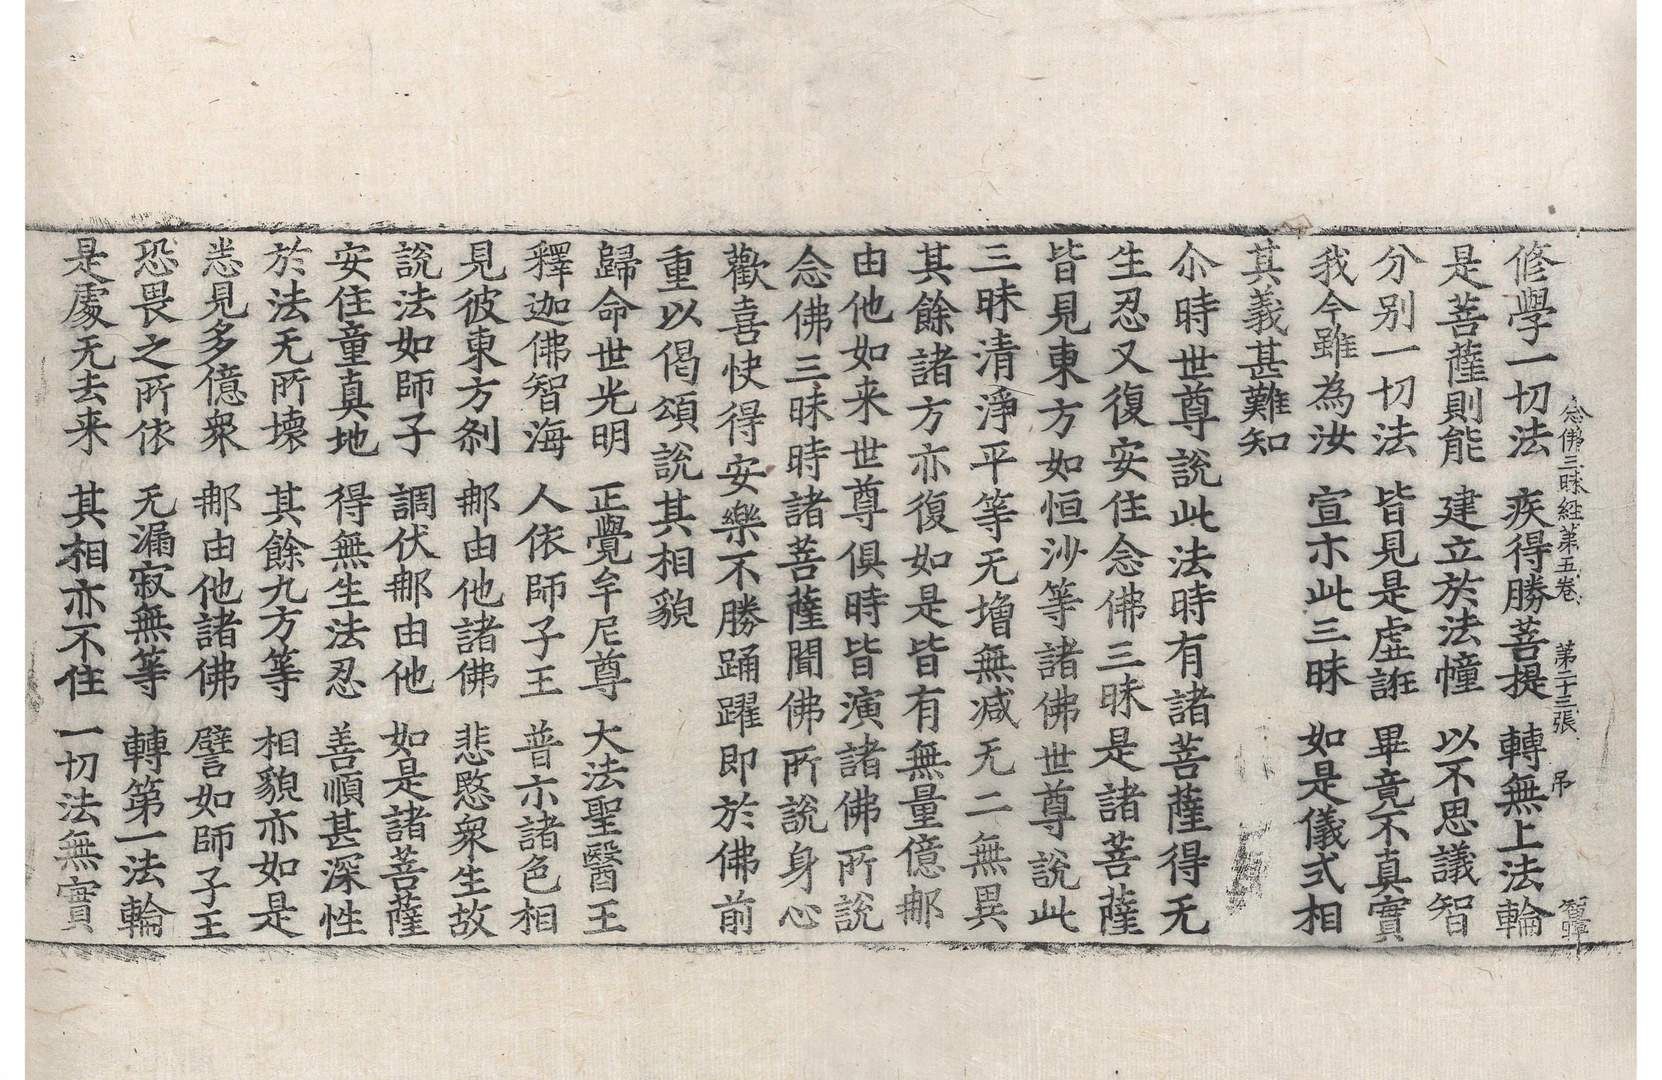 念佛三昧經第五卷 第二十三張 吊
修學一切法 疾得勝菩提 轉無上法輪
是菩薩則能 建立於法幢 以不思議智
分別一切法 皆見是虛誑 畢竟不真實
我今雖為汝 宣示此三昧 如是儀式相
其義甚難知
尒時世尊說此法時有諸菩薩得无
生忍又復安住念佛三昧是諸菩薩
皆見東方如恒沙等諸佛世尊說此
三昧清淨平等无増無減无二無異
其餘諸方亦復如是皆有無量億那
由他如来世尊俱時皆演諸佛所說
念佛三昧時諸菩薩聞佛所說身心
歡喜快得安樂不勝踊躍即於佛前
重以偈頌說其相貌
歸命世光明 正覺牟尼尊 大法聖醫王
釋迦佛智海 人依師子王 普示諸色相
見彼東方刹 那由他諸佛 悲愍衆生故
說法如師子 調伏那由他 如是諸菩薩
安住童真地 得無生法忍 善順甚深性
於法无所壞 其餘九方等 相貌亦如是
悉見多億衆 那由他諸佛 譬如師子王
恐畏之所依 无漏寂無等 轉第一法輪
是處无去来 其相亦不住 一切法無實